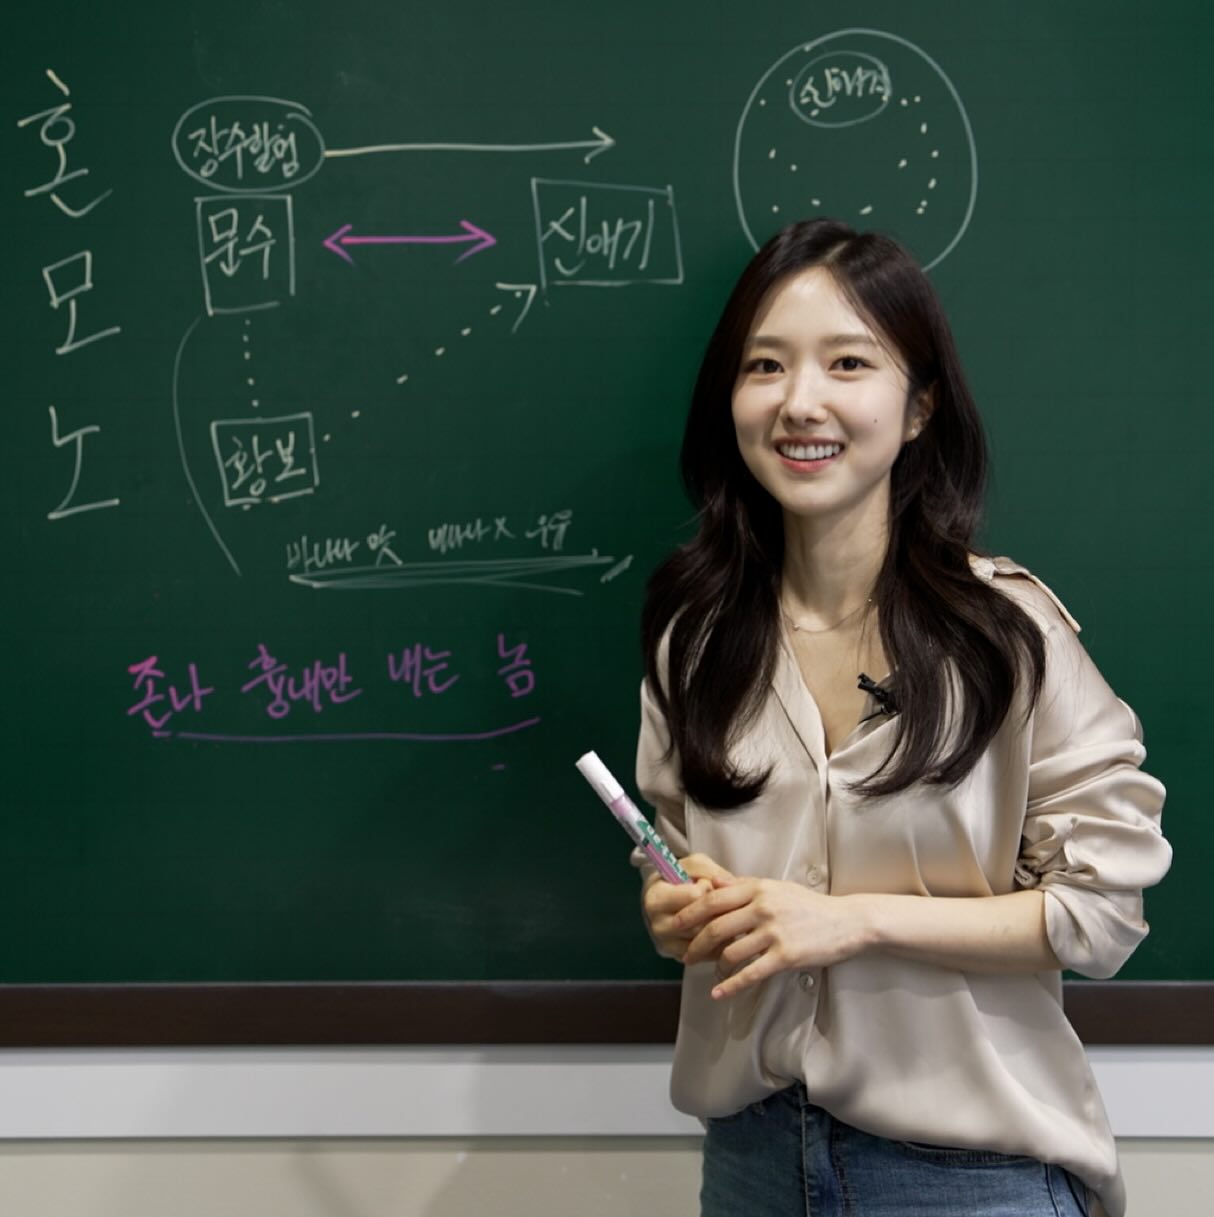 혼모노
장수할멈
문수
신애기
신애기
황보
바나나 맛 바나나 X 우유
존나 흉내만 내는 놈